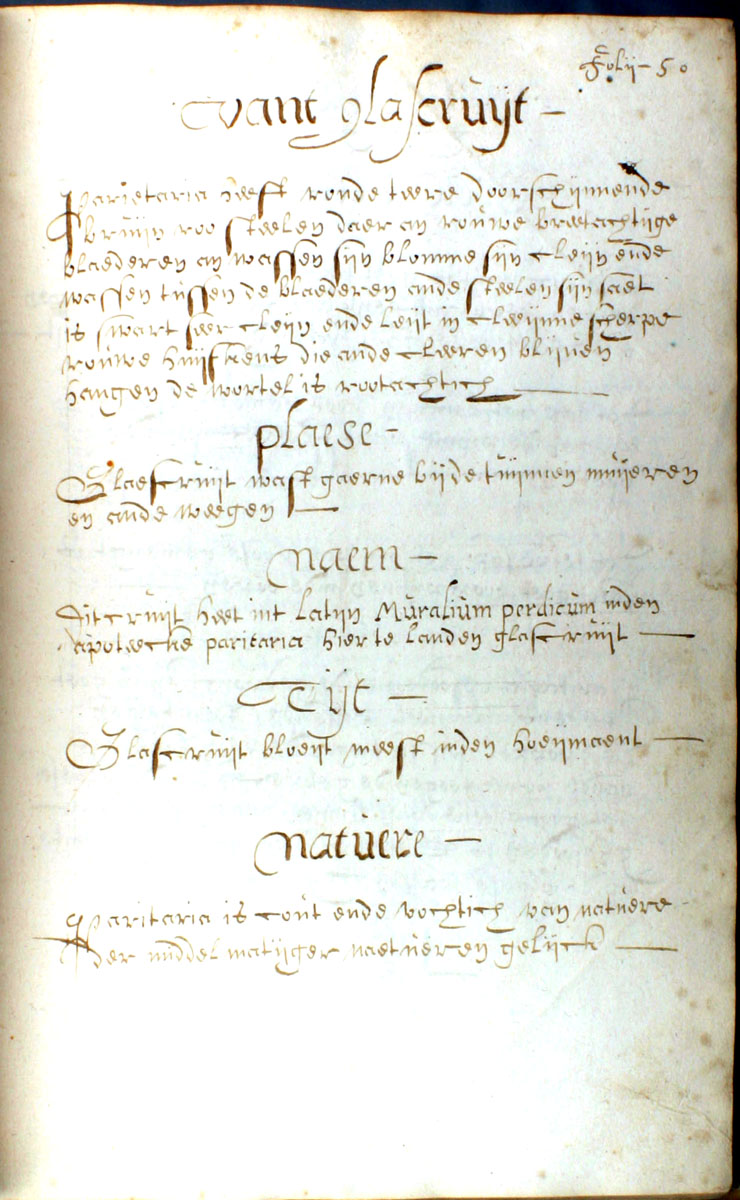 Folij - 50
vant glascruijt -
Parietaria heeft ronde teere doorschijnnende
bruijn roo steelen daer an rouwe breetachtijge
blaederen an wassen sijn blomme sijn cleijn ende
wassen tussen de blaederen ande steelen sijn saet
is swart seer cleijn ende leijt in cleeijnne scherpe
rouwe huijskens die ande cleeren blijven
hangen de wortel is rootachtich
plaese -
Glaescruijt wast gaerne bij de tuijnnen muijeren
en ande weegen
naem -
Dit cruijt heet int latijn Muralium perdicum inden
apoteecke paritaria hier te landen glascruijt
Tijt -
Glascruijt bloeijt meest inden hoeijmaent
natuere -
Paritaria is cout ende vochtich van natuere
der middelmatijger naetueren gelijck